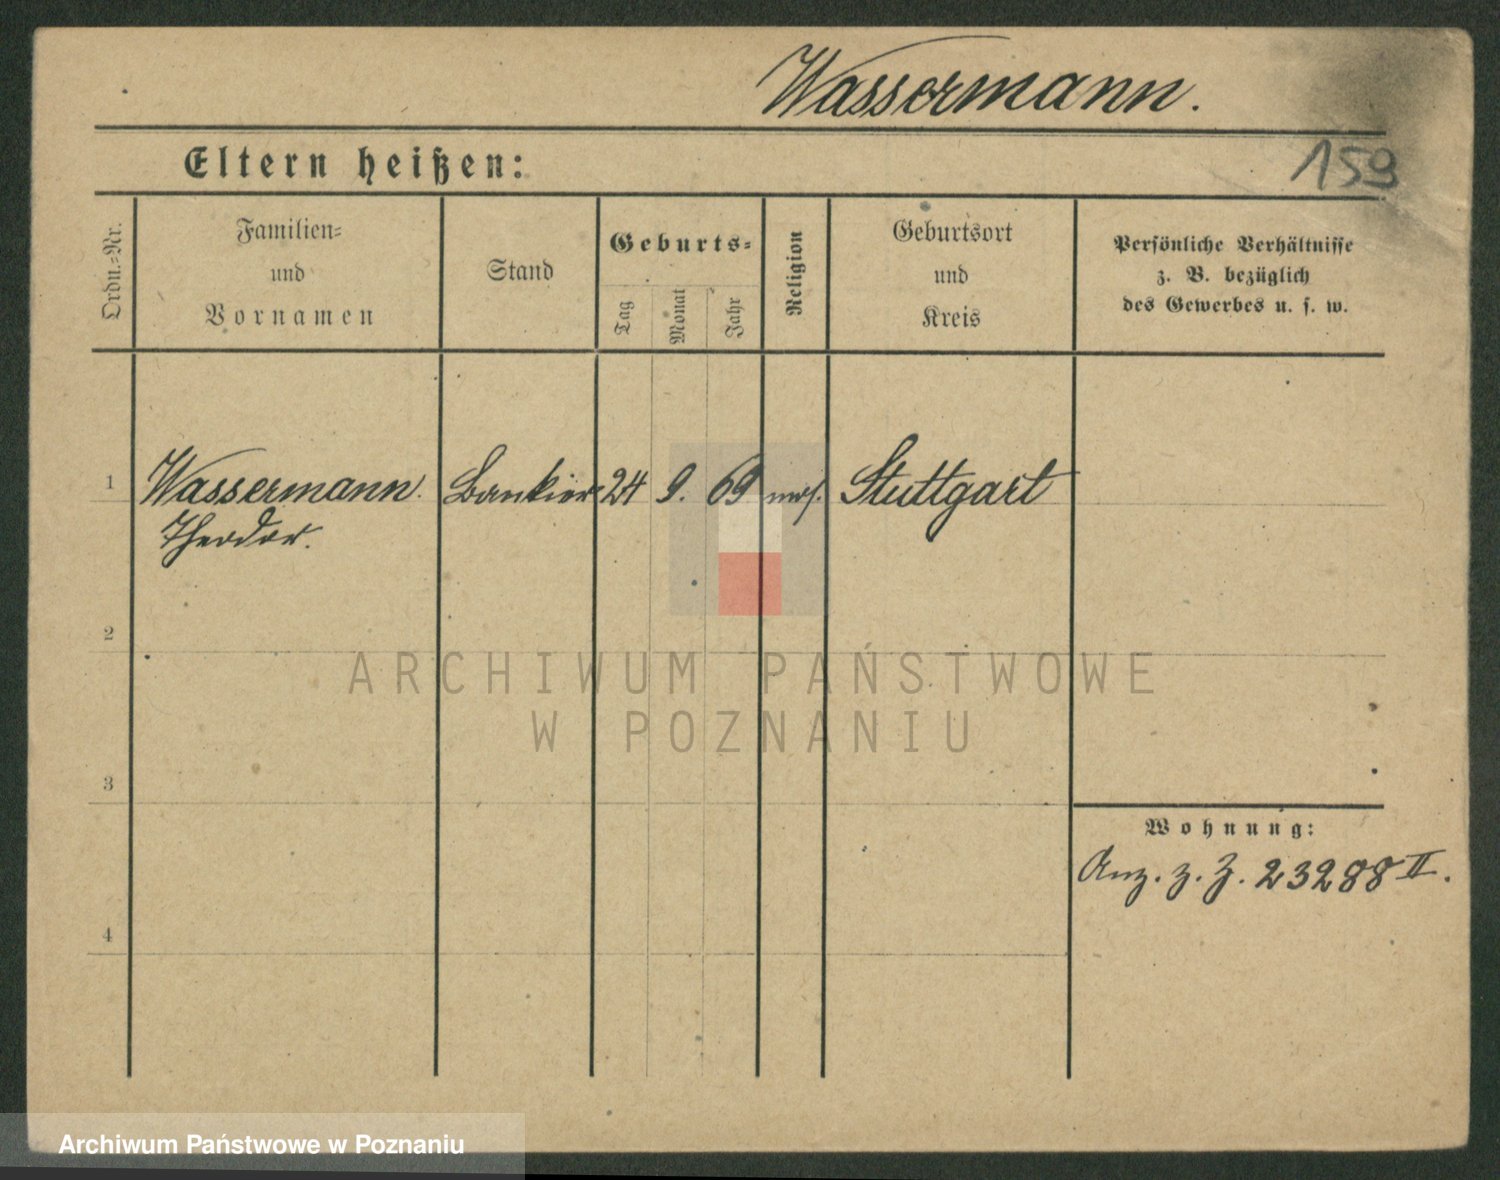 Wassermann.
Eltern heißen:
159
Ordn.-Nr.
Familien-
und
Vornamen
Stand
Geburts-
Tag
Monat
Jahr
Religion
Geburtsort
und
Kreis
Persönliche Verhältnisse
z. B. bezüglich
des Gewerbes u. s. w.
1
Wassermann.
Theodor.
Bankier
24
9.
69
mos.
Stuttgart
2
ARCHIWUM PAŃSTWOWE
W POZNANIU
3
Wohnung:
Anz. z. Z. 23288 II.
4
Archiwum Państwowe w Poznaniu